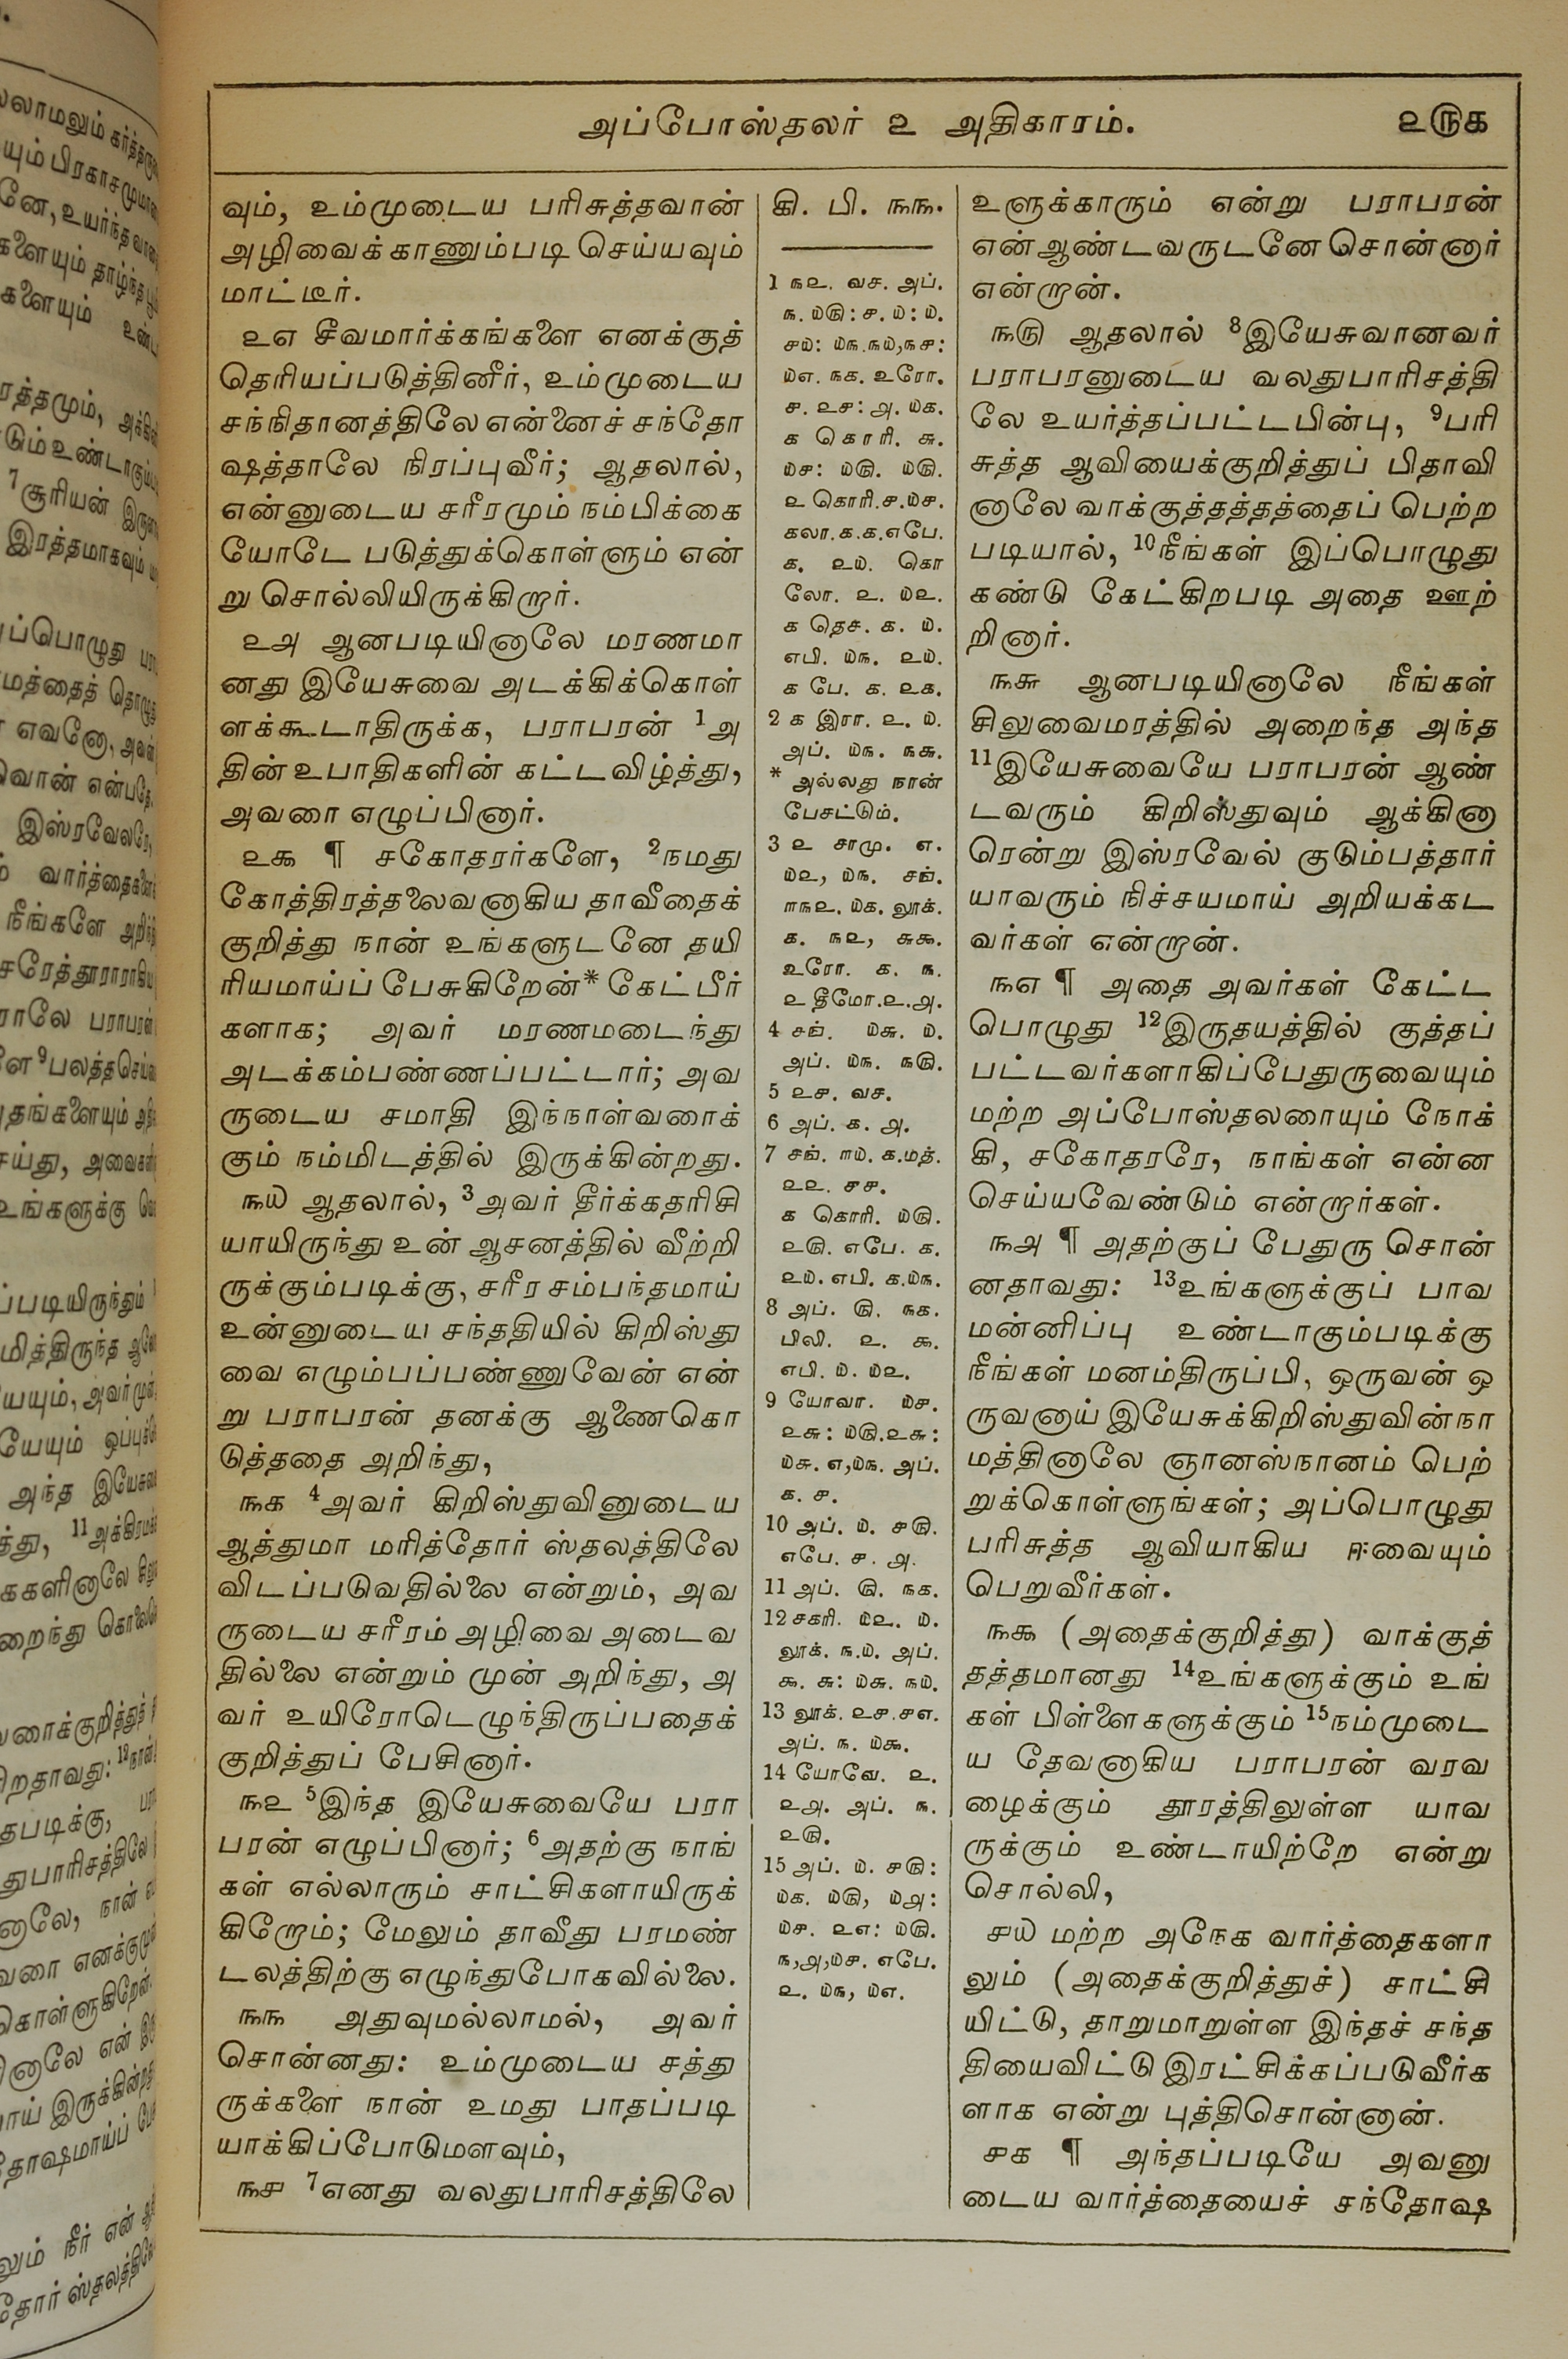 அப்போஸ்தலர் ௨ அதிகாரம்.
௨௫௧
வும், உம்முடைய பரிசுத்தவான்
அழிவைக்காணும்படி செய்யவும்
மாட்டீர்.
௨௭ சீவமார்க்கங்களை எனக்குத்
தெரியப்படுத்தினீர், உம்முடைய
சந்நிதானத்திலே என்னைச் சந்தோ
ஷத்தாலே நிரப்புவீர்; ஆதலால்,
என்னுடைய சரீரமும் நம்பிக்கை
யோடே படுத்துக்கொள்ளும் என்
று சொல்லியிருக்கிறார்.
௨௮ ஆனபடியினாலே மரணமா
னது இயேசுவை அடக்கிக்கொள்
ளக்கூடாதிருக்க, பராபரன் 1அ
தின் உபாதிகளின் கட்டவிழ்த்து,
அவரை எழுப்பினார்.
௨௯ ¶ சகோதரர்களே, 2நமது
கோத்திரத்தலைவனாகிய தாவீதைக்
குறித்து நான் உங்களுடனே தயி
ரியமாய்ப் பேசுகிறேன்* கேட்பீர்
களாக; அவர் மரணமடைந்து
அடக்கம்பண்ணப்பட்டார்; அவ
ருடைய சமாதி இந்நாள்வரைக்
கும் நம்மிடத்தில் இருக்கின்றது.
௩௰ ஆதலால், 3அவர் தீர்க்கதரிசி
யாயிருந்து உன் ஆசனத்தில் வீற்றி
ருக்கும்படிக்கு, சரீர சம்பந்தமாய்
உன்னுடைய சந்ததியில் கிறிஸ்து
வை எழும்பப்பண்ணுவேன் என்
று பராபரன் தனக்கு ஆணைகொ
டுத்ததை அறிந்து,
௩௧ 4அவர் கிறிஸ்துவினுடைய
ஆத்துமா மரித்தோர் ஸ்தலத்திலே
விடப்படுவதில்லை என்றும், அவ
ருடைய சரீரம் அழிவை அடைவ
தில்லை என்றும் முன் அறிந்து, அ
வர் உயிரோடெழுந்திருப்பதைக்
குறித்துப் பேசினார்.
௩௨ 5இந்த இயேசுவையே பரா
பரன் எழுப்பினார்; 6அதற்கு நாங்
கள் எல்லாரும் சாட்சிகளாயிருக்
கிறோம்; மேலும் தாவீது பரமண்
டலத்திற்கு எழுந்துபோகவில்லை.
௩௩ அதுவுமல்லாமல், அவர்
சொன்னது: உம்முடைய சத்து
ருக்களை நான் உமது பாதப்படி
யாக்கிப்போடுமளவும்,
௩௪ 7எனது வலதுபாரிசத்திலே
கி. பி. ௩௩.
1 ௩௨. வச. அப்.
௩. ௰௫: ௪. ௰: ௰.
௪௰: ௰௩.௩௰,௩௪:
௰௭. ௩௧. உரோ.
௪. ௨௪: ௮. ௰௧.
௧ கொரி. ௬.
௰௪: ௰௫. ௰௫.
௨ கொரி.௪.௰௪.
கலா.௧.௧.எபே.
௧. ௨௰. கொ
லோ. ௨. ௰௨.
௧ தெச. ௧. ௰.
எபி. ௰௩. ௨௰.
௧ பே. ௧. ௨௧.
2 ௧ இரா. ௨. ௰.
அப். ௰௩. ௩௬.
* அல்லது நான்
பேசட்டும்.
3 ௨ சாமு. ௭.
௰௨, ௰௩. சங்.
௱௩௨. ௰௧. லூக்.
௧. ௩௨, ௬௯.
உரோ. ௧. ௩.
௨ தீமோ.௨.௮.
4 சங். ௰௬. ௰.
அப். ௰௩. ௩௫.
5 ௨௪. வச.
6 அப். ௧. ௮.
7 சங். ௱௰. ௧.மத்.
௨௨. ௪௪.
௧ கொரி. ௰௫.
௨௫. எபே. ௧.
௨௰. எபி. ௧.௰௩.
8 அப். ௫. ௩௧.
பிலி. ௨. ௯.
எபி. ௰. ௰௨.
9 யோவா. ௰௪.
௨௬: ௰௫.௨௬:
௰௬. ௭,௰௩. அப்.
௧. ௪.
10 அப். ௰. ௪௫.
எபே. ௪. ௮.
11 அப். ௫. ௩௧.
12 சகரி. ௰௨. ௰.
லூக். ௩.௰. அப்.
௯. ௬: ௰௬. ௩௰.
13 லூக். ௨௪.௪௭.
அப். ௩. ௰௯.
14 யோவே. ௨.
௨௮. அப். ௩.
௨௫.
15 அப். ௰. ௪௫:
௰௧. ௰௫, ௰௮:
௰௪. ௨௭: ௰௫.
௩,௮,௰௪. எபே.
௨. ௰௩, ௰௭.
உளுக்காரும் என்று பராபரன்
என் ஆண்டவருடனே சொன்னார்
என்றான்.
௩௫ ஆதலால் 8இயேசுவானவர்
பராபரனுடைய வலதுபாரிசத்தி
லே உயர்த்தப்பட்டபின்பு, 9பரி
சுத்த ஆவியைக்குறித்துப் பிதாவி
னாலே வாக்குத்தத்தத்தைப் பெற்ற
படியால், 10நீங்கள் இப்பொழுது
கண்டு கேட்கிறபடி அதை ஊற்
றினார்.
௩௬ ஆனபடியினாலே நீங்கள்
சிலுவைமரத்தில் அறைந்த அந்த
11இயேசுவையே பராபரன் ஆண்
டவரும் கிறிஸ்துவும் ஆக்கினா
ரென்று இஸ்ரவேல் குடும்பத்தார்
யாவரும் நிச்சயமாய் அறியக்கட
வர்கள் என்றான்.
௩௭ ¶ அதை அவர்கள் கேட்ட
பொழுது 12இருதயத்தில் குத்தப்
பட்டவர்களாகிப்பேதுருவையும்
மற்ற அப்போஸ்தலரையும் நோக்
கி, சகோதரரே, நாங்கள் என்ன
செய்யவேண்டும் என்றார்கள்.
௩௮ ¶ அதற்குப் பேதுரு சொன்
னதாவது: 13உங்களுக்குப் பாவ
மன்னிப்பு உண்டாகும்படிக்கு
நீங்கள் மனம்திருப்பி, ஒருவன் ஒ
ருவனாய் இயேசுக்கிறிஸ்துவின்நா
மத்தினாலே ஞானஸ்நானம் பெற்
றுக்கொள்ளுங்கள்; அப்பொழுது
பரிசுத்த ஆவியாகிய ஈவையும்
பெறுவீர்கள்.
௩௯ (அதைக்குறித்து) வாக்குத்
தத்தமானது 14உங்களுக்கும் உங்
கள் பிள்ளைகளுக்கும் 15நம்முடை
ய தேவனாகிய பராபரன் வரவ
ழைக்கும் தூரத்திலுள்ள யாவ
ருக்கும் உண்டாயிற்றே என்று
சொல்லி,
௪௰ மற்ற அநேக வார்த்தைகளா
லும் (அதைக்குறித்துச்) சாட்சி
யிட்டு, தாறுமாறுள்ள இந்தச் சந்த
தியைவிட்டு இரட்சிக்கப்படுவீர்க
ளாக என்று புத்திசொன்னான்.
௪௧ ¶ அந்தப்படியே அவனு
டைய வார்த்தையைச் சந்தோஷ